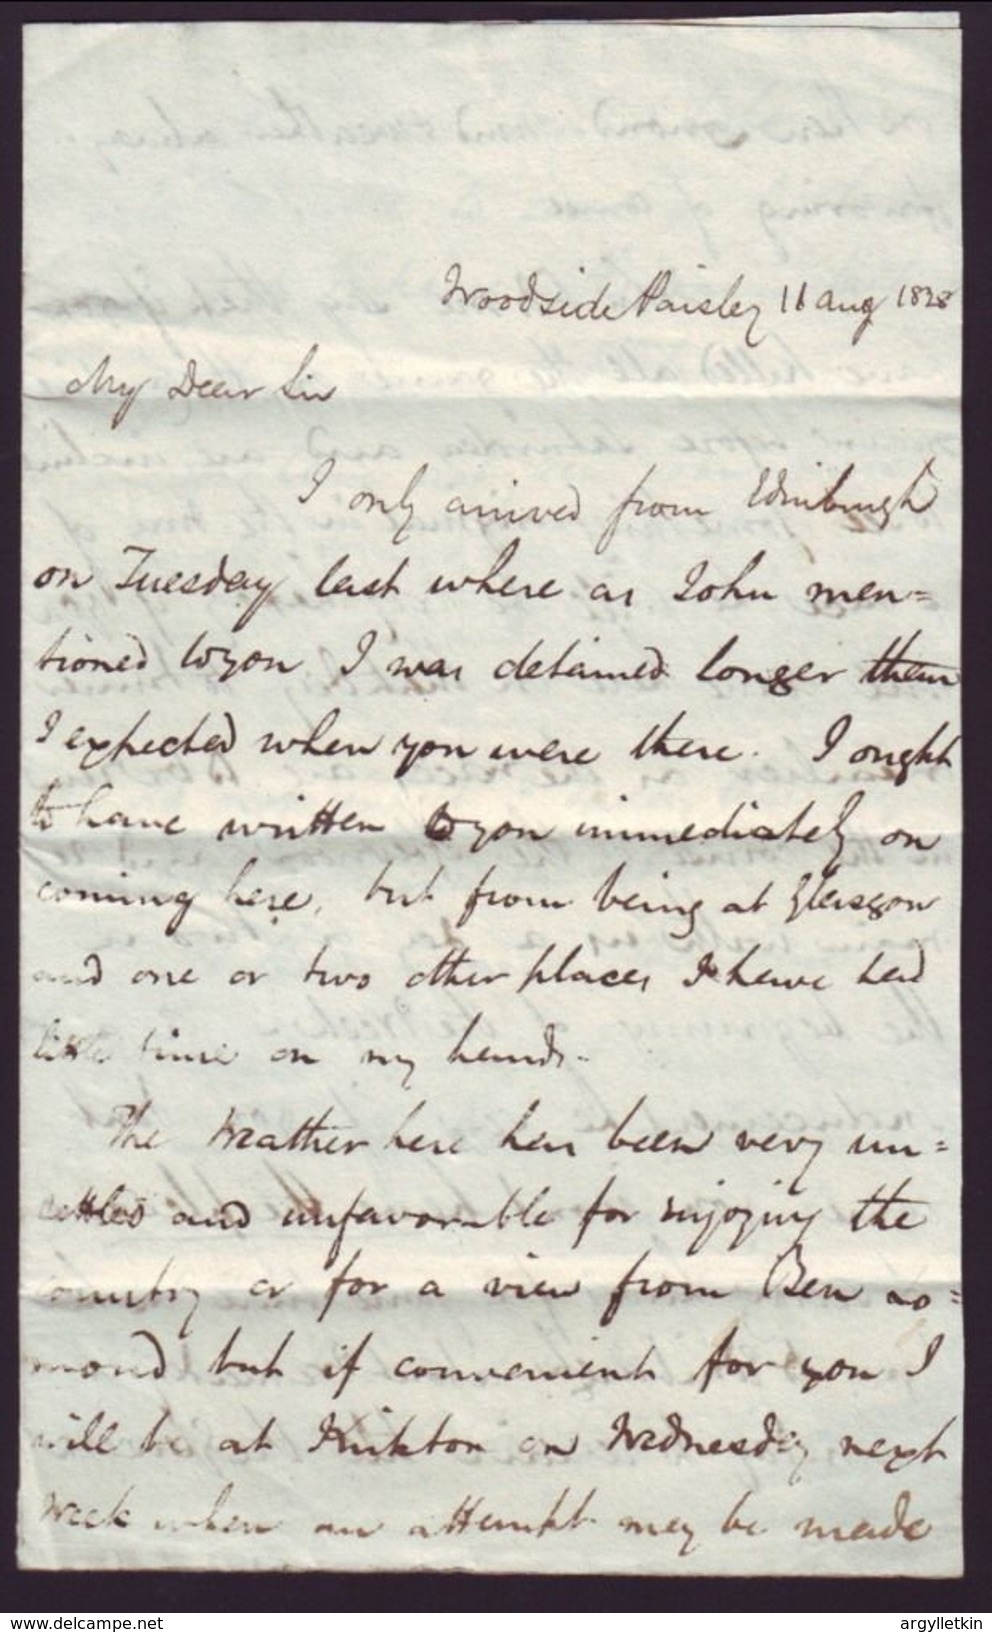 Woodside Paisley 11 Aug 1828
My Dear Sir
I only arrived from Edinburgh
on Tuesday last where as John men=
tioned to you I was detained longer than
I expected when you were there. I ought
to have written to you immediately on
coming here, but from being at Glasgow
and one or two other places I have had
little time on my hands.
The Weather here has been very un=
settled and unfavorable for enjoying the
country or for a view from Ben Lo=
mond but if convenient for you I
will be at Kirkton on Wednesday next
week when an attempt may be made
www.delcampe.net
argylletkin